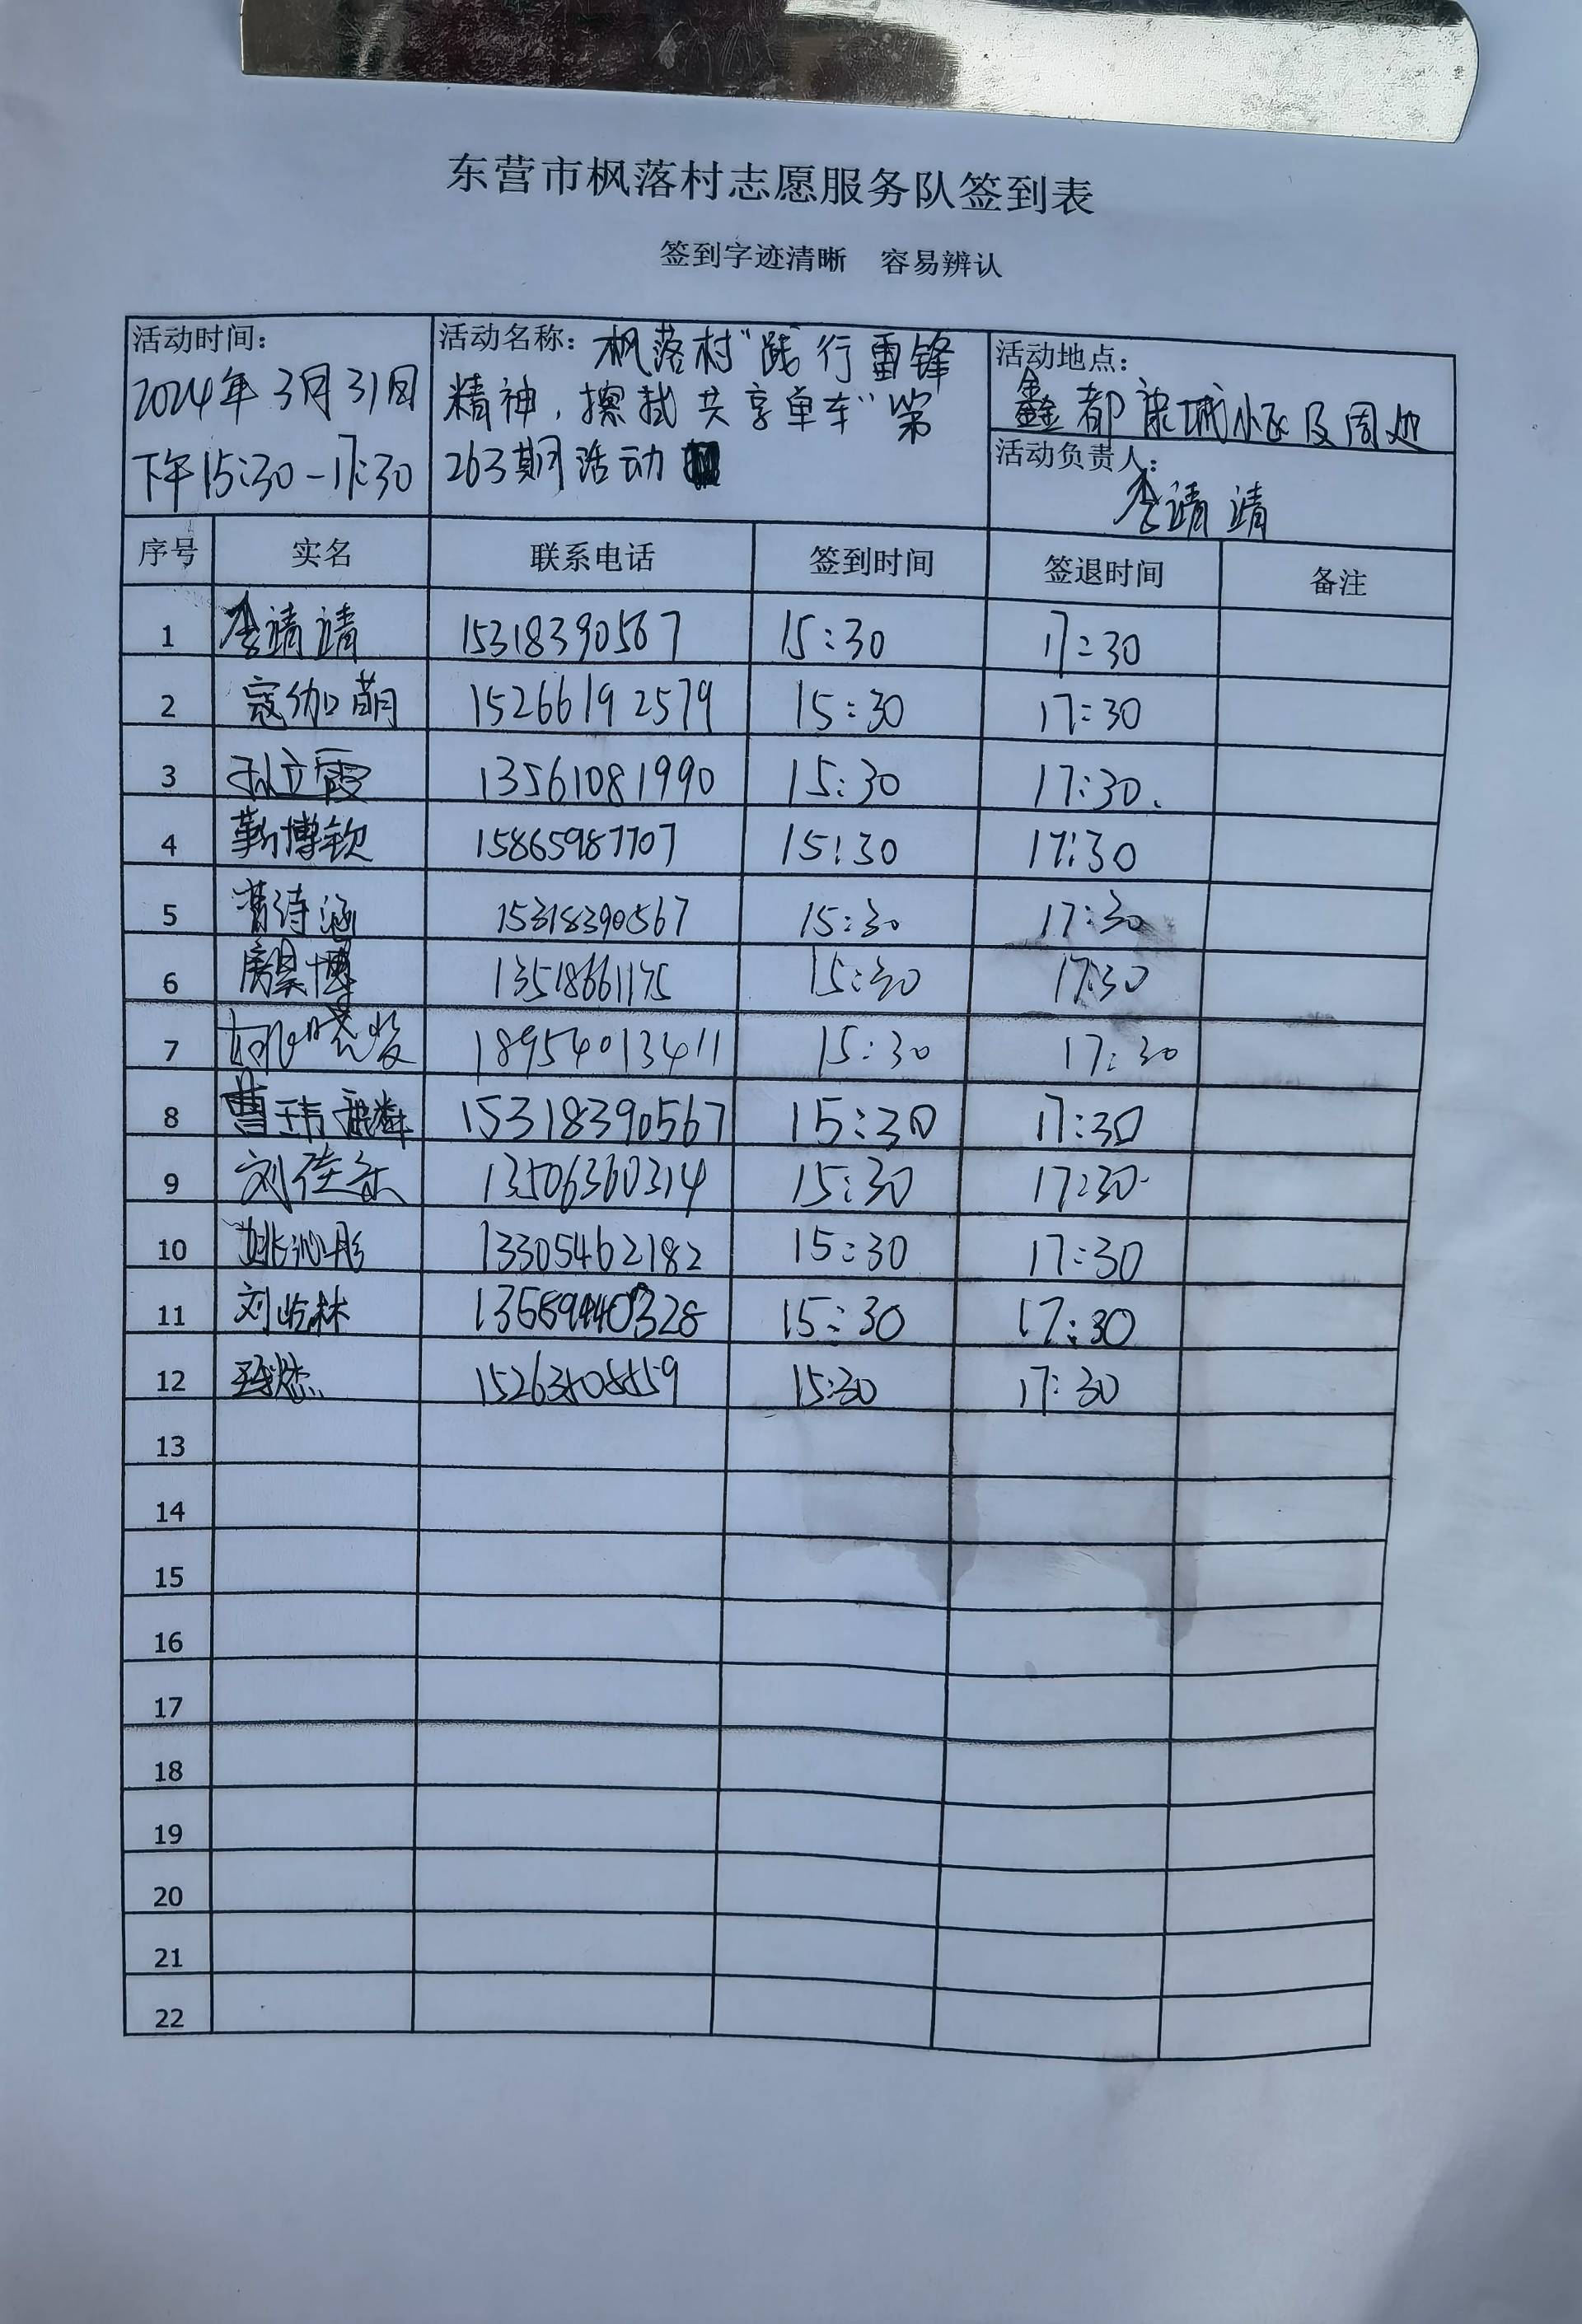 东营市枫落村志愿服务队签到表
签到字迹清晰 容易辨认
活动时间：
2024年3月31日
下午15:30-17:30
活动名称：枫落村“践行雷锋
精神，擦拭共享单车”第
263期活动
活动地点：
鑫都康城小区及周边
活动负责人：
李靖靖
序号 实名 联系电话 签到时间 签退时间 备注
1 李靖靖 15318390567 15:30 17:30
2 寇伽萌 15266192579 15:30 17:30
3 孙立霞 13561081990 15:30 17:30
4 靳博钦 15865987707 15:30 17:30
5 曹诗涵 15318390567 15:30 17:30
6 博 13518661175 15:30 17:30
7 18954013411 15:30 17:30
8 曹玮麟 15318390567 15:30 17:30
9 刘佳乐 13506360314 15:30 17:30
10 姚沁彤 13305462182 15:30 17:30
11 刘屹林 15:30 17:30
12 15:30 17:30
13
14
15
16
17
18
19
20
21
22